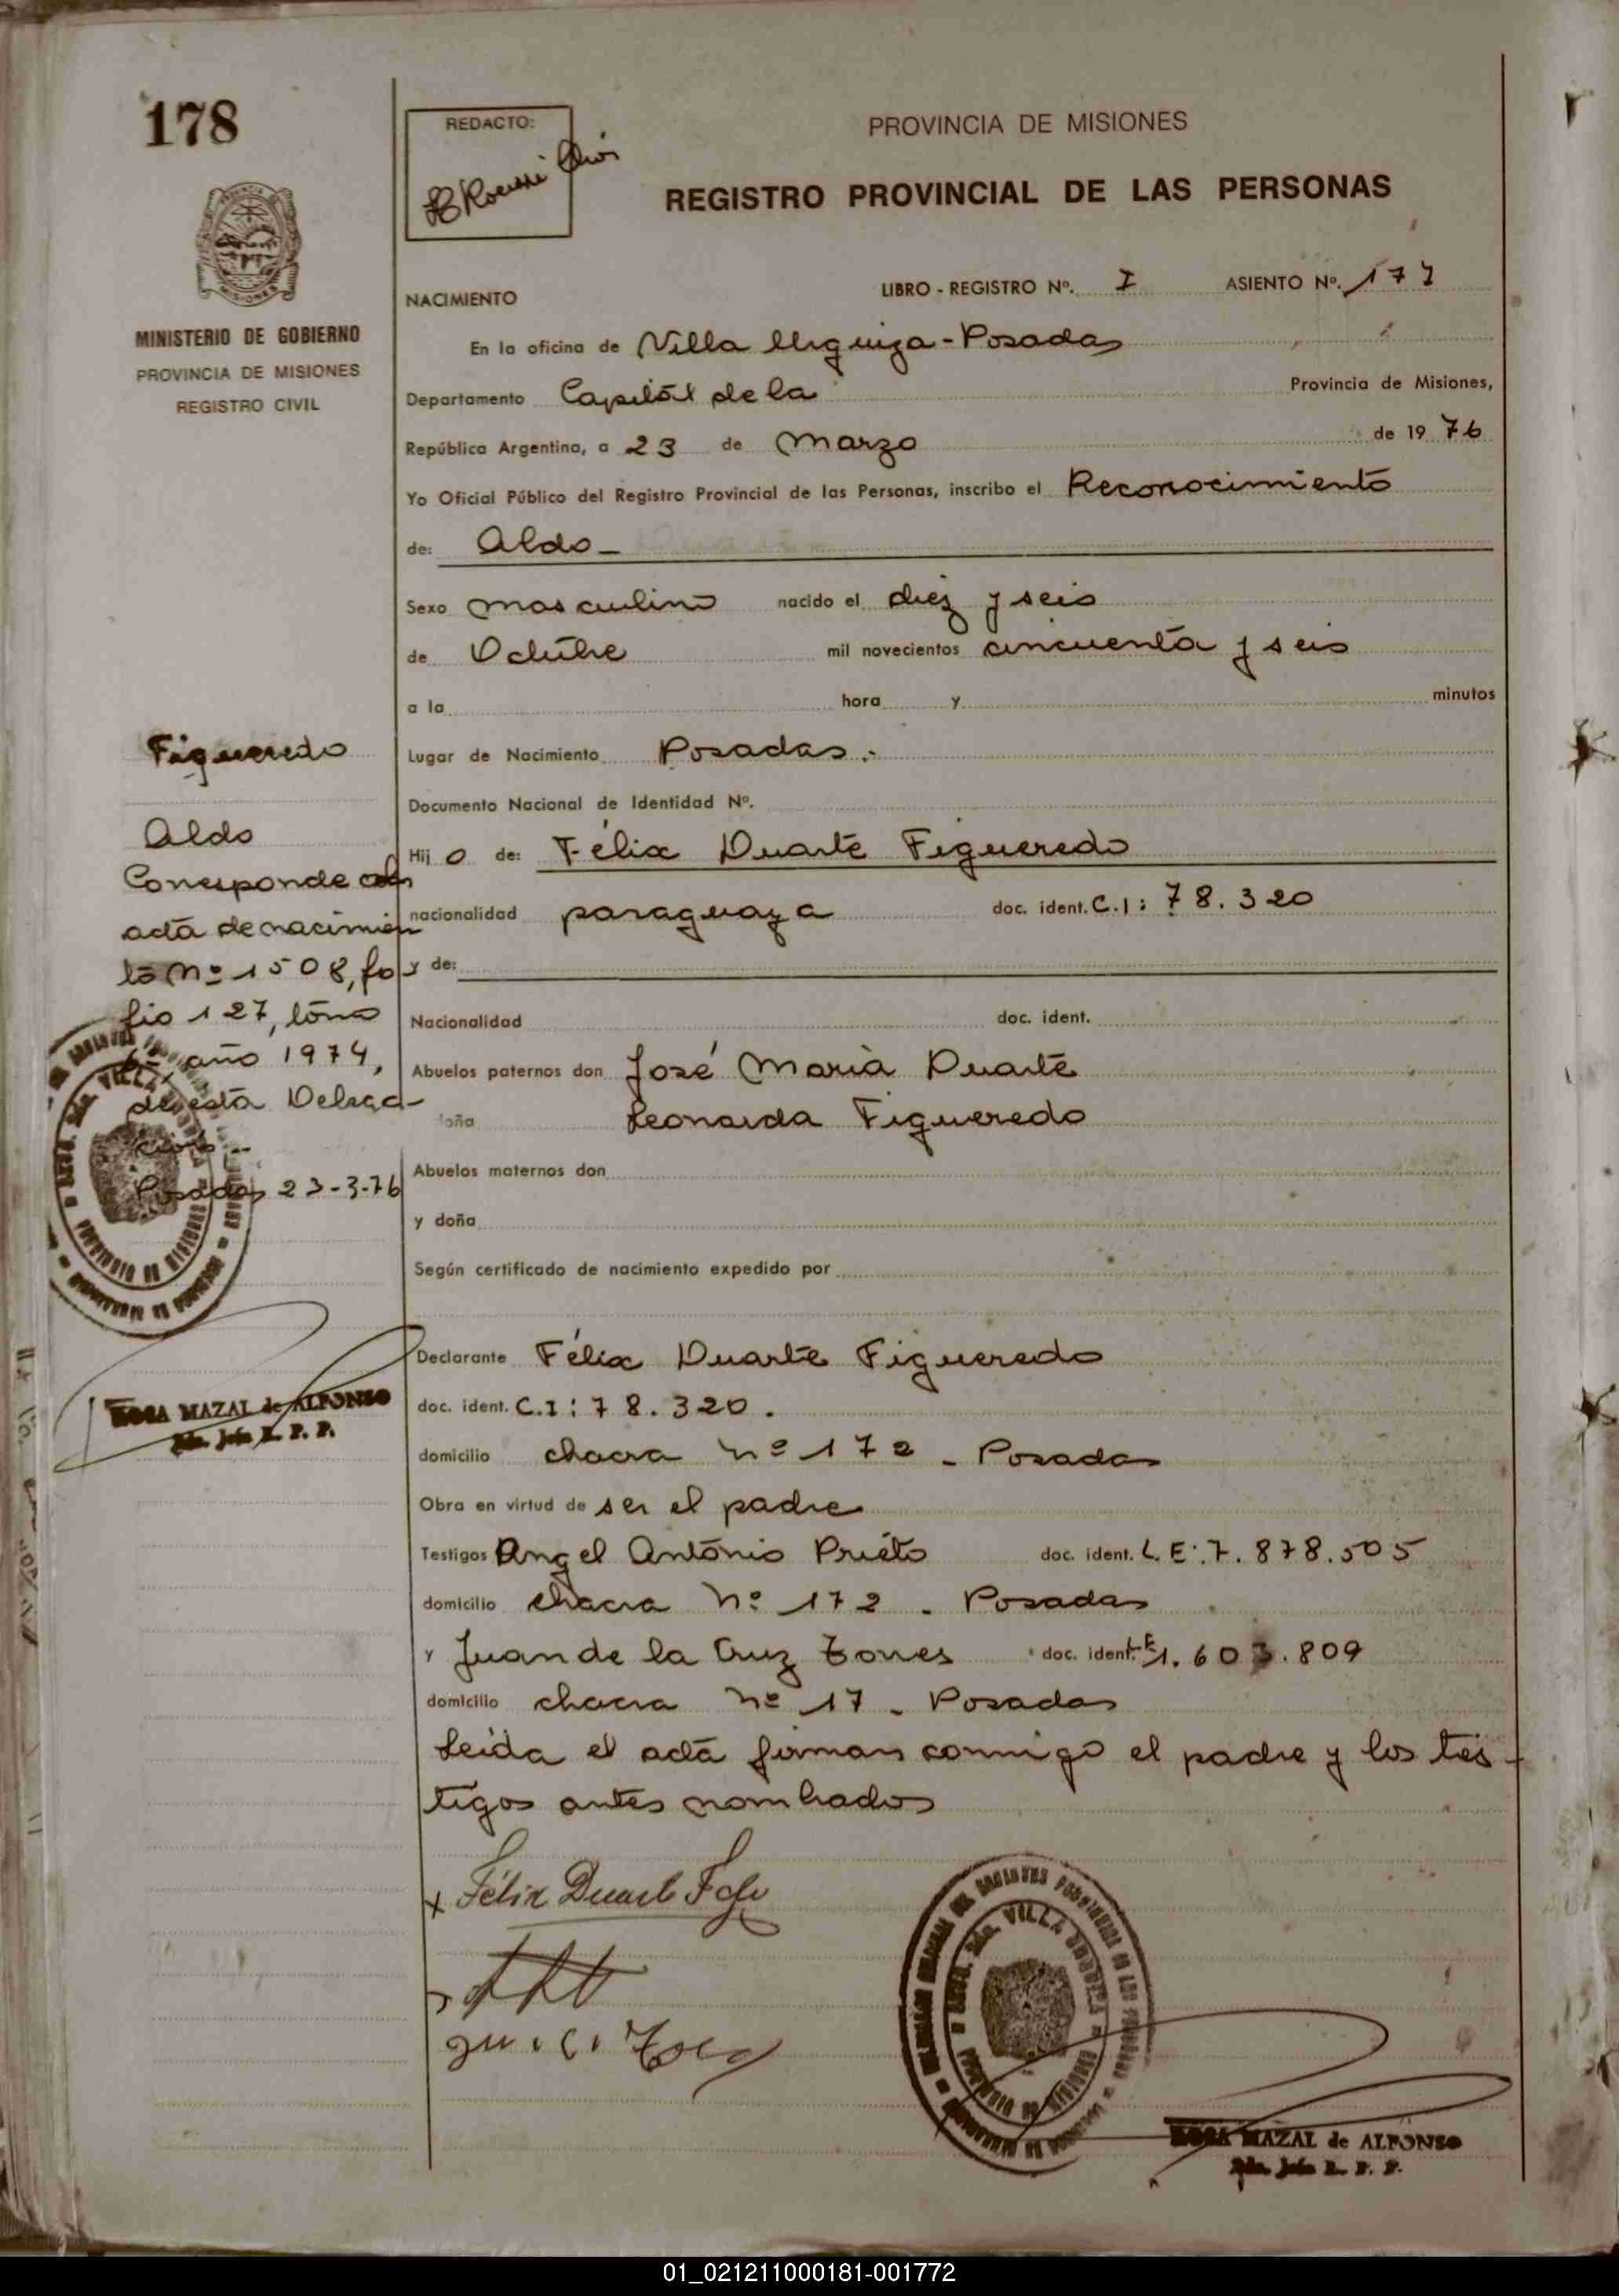 178
REDACTO:
PROVINCIA DE MISIONES
REGISTRO PROVINCIAL DE LAS PERSONAS
MISIONES
MINISTERIO DE GOBIERNO
PROVINCIA DE MISIONES
REGISTRO CIVIL
NACIMIENTO LIBRO - REGISTRO Nº. I ASIENTO Nº. 177
En la oficina de Villa Urquiza - Posadas
Departamento Capital de la Provincia de Misiones,
República Argentina, a 23 de Marzo de 1976
Yo Oficial Público del Registro Provincial de las Personas, inscribo el Reconocimiento
de: Aldo -
Sexo masculino nacido el diez y seis
de Octubre mil novecientos cincuenta y seis
a la hora y minutos
Lugar de Nacimiento Posadas.-
Documento Nacional de Identidad Nº.
Hijo de: Félix Duarte Figueredo
nacionalidad paraguaya doc. ident. C.I: 78.320
y de:
Nacionalidad doc. ident.
Abuelos paternos don José María Duarte
doña Leonarda Figueredo
Abuelos maternos don
y doña
Según certificado de nacimiento expedido por
Declarante Félix Duarte Figueredo
doc. ident. C.I: 78.320.
domicilio chacra nº 172 - Posadas
Obra en virtud de ser el padre
Testigos Angel Antonio Prieto doc. ident. L.E: 7.878.505
domicilio chacra Nº 172 - Posadas
y Juan de la Cruz Torres doc. ident. LE 1.603.809
domicilio chacra nº 17 - Posadas
Leída el acta firman conmigo el padre y los tes-
tigos antes nombrados
Figueredo
Aldo
Corresponde al
acta de nacimien
to Nº 1508, fo
lio 127, tomo
año 1974,
de esta Delega-
ción.-
Posadas 23-3-76
ROSA MAZAL de ALFONSO
Félix Duarte
VILLA URQUIZA
ROSA MAZAL de ALFONSO
01_021211000181-001772